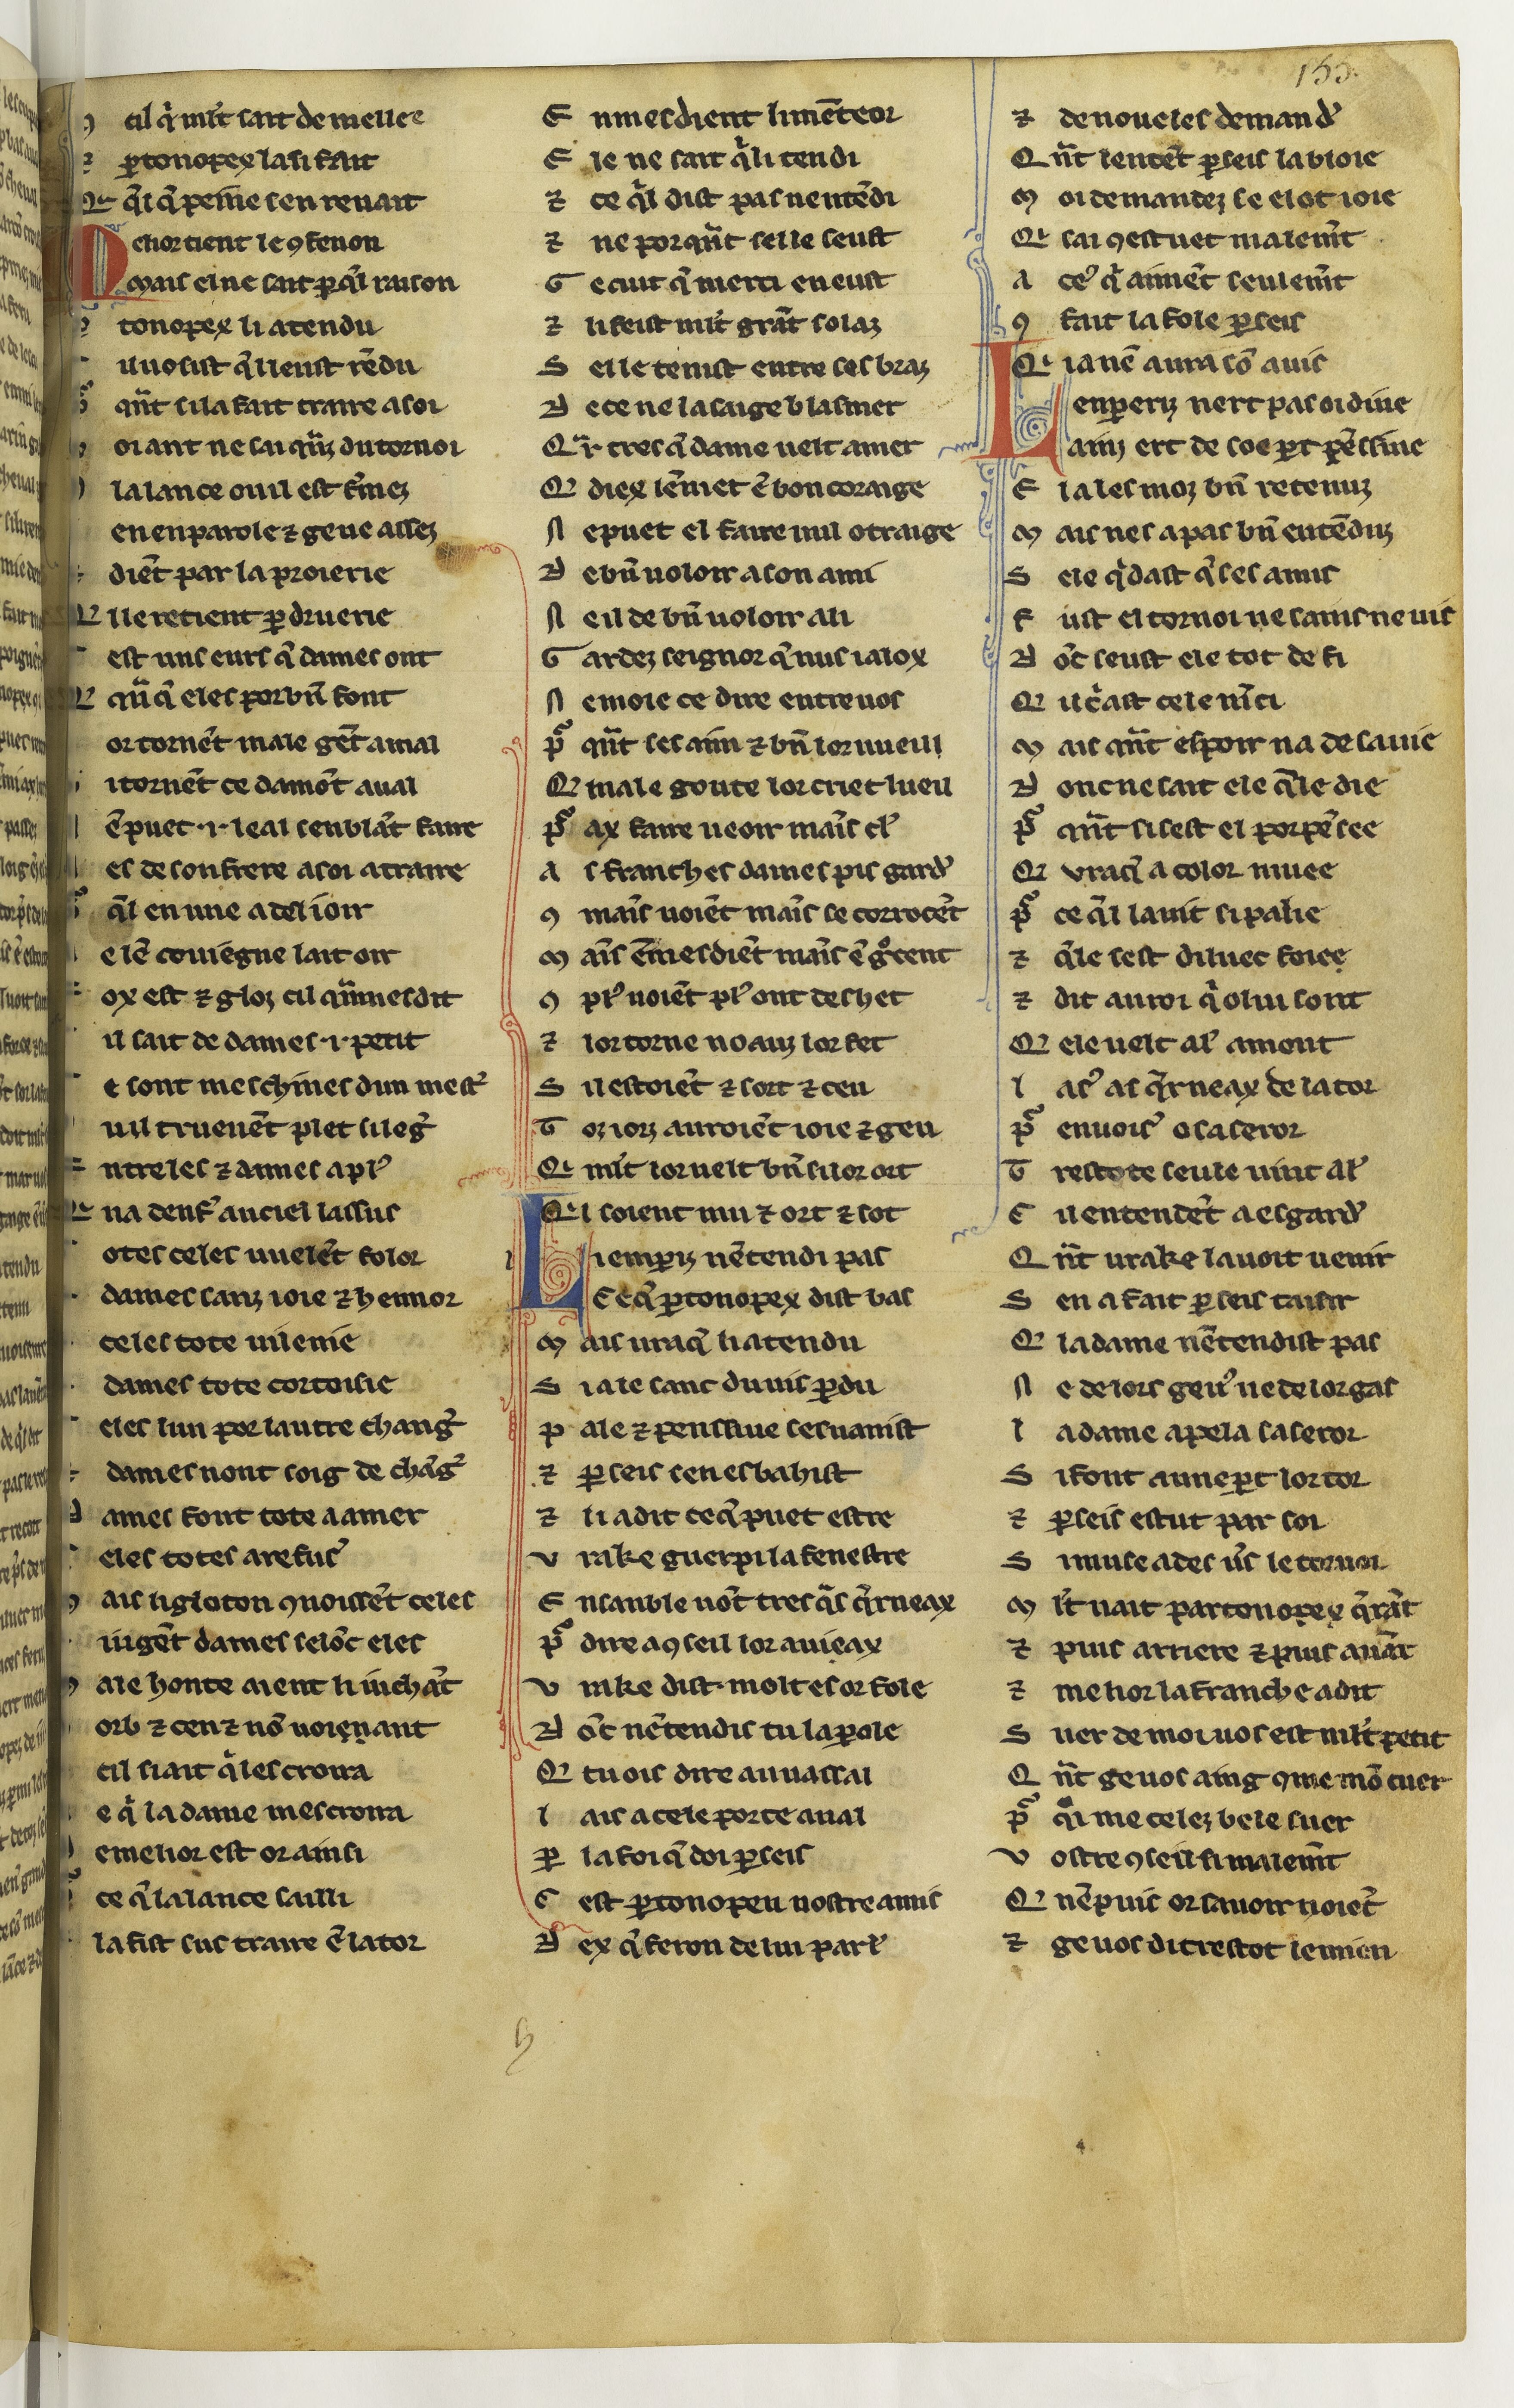 155.
cil q̾ ml̃t sait de mellee
ꝑtonopex la si fait
Q̃l q̃ peine s en renait
ehor tient le ꝯfenon
Mais el ne sait ꝑ q̃l raison
tonopex li atendu
il uosist q̃ li eust rẽdu
qñt si la fait traire a soi
oiant ne sai qñz du tornoi
la lance ou il est fermez
en en parole ⁊ geue assez
diẽt par la proierie
lle retient ꝑ druerie
est uns eurs q̃ dames ont
qñq̃ eles por bñ font
or tornẽt male gẽt a mal
i tornẽt ce damõt aual
ẽ puet .i. leal senblãt faire
es de son frere a soi atraire
q̃l en une a del ioir
e lẽ couiegne lait oir
ox est ⁊ gloz cil qñ mesdit
il sait de dames .i. petit
e sont meschines dun mest̾
uil truevẽt plet si leg̾
ntre les ⁊ dames a pl̾
na denf̾ au ciel lassus
otes celes uuelẽt folor
dames sanz ioie ⁊ hennor
celes tote uilenie
dames tote cortoisie
eles lun por lautre chang̾
dames nont soig de chãg̾
ames font tote a amer
eles totes a refus̾
ais li gloton ꝯnoissẽt celes
iugẽt dames selõc eles
ale honte aient li iuchãt
orb ⁊ cen ⁊ nõ uoienant
cil si ait q̾ les croira
e q̾ la dame mescroira
emelior est or ainsi
ce q̃ la lance sailli
la fist sus traire ẽ la tor
E nmesdient li mẽteor
E le ne sait q̾ li tendi
⁊ ce q̾l dist pas nentẽdi
⁊ ne porqñt selle seust
G e cuit q̃ merci en eust
⁊ li feist ml̃t grãt solaz
S el le tenist entre ses braz
D e ce ne la sai ge blasmer
Qr tres q̃ dame uelt amer
Q diex lẽ met ẽ bon coraige
N e puet el faire nul otraige
D e bñ uoloir a son ami
N e il de bñ uoloir a li
G ardez seignor q̃ nus ialox
N e moie ce dire entre uos
P̾ qñt ses aim ⁊ bñ lor uueill
Q male goute lor criet lueil
P̾ ax faire ueoir mains cl̾
A s franches dames pis gard̾
ꝯ mains uoiẽt mains se corrocẽt
M ains ẽ mesdiẽt mains ẽ g̾cent
ꝯ pl̾ uoiẽt pl̾ ont deshet
⁊ lor torne noauz lor fet
S il estoiẽt ⁊ sort ⁊ ceu
T oz iorz auroiẽt ioie ⁊ geu
Q ml̃t lor uelt bñ si lor ort
Ql soient mu ⁊ ort ⁊ sot
i emperiz nẽtendi pas
Ce q̃ ꝑtonopex dist bas
M ais uraq̃ li atendu
S i a le sanc du uis ꝑdu
P ale ⁊ penssiue sesuanist
⁊ ꝑseis sen esbahist
⁊ li a dit ce q̃ puet estre
V rake guerpi la fenestre
E nsanble uõt tres q̾s q̾rneax
P̾ dire a ꝯseil lor auieax
V rake dist molt es or fole
D õc nẽtendis tu la ꝑole
Q tu ois dire au uassal
L ais a cele porte aual
ꝑ la foi q̃ doi ꝑseis
C est ꝑtonopeu nostre amis
D ex q̃ feron de lui parl̾
⁊ de noueles demand̾
Qñt lentẽt ꝑseis la bloie
M oi demandez se el ot ioie
Q sai ꝯ estuet malemt̃
A ce̾ q̾ aimẽt seulemt̃
ꝯ fait la fole ꝑseis
Q ia nẽ aura sõ auis
emperiz nert pas oidiue
ainz ert de soe ꝑt pẽssiue
E la les moz bñ retenuz
M ais nes a pas bñ entẽduz
S ele q̾dast q̃ ses amis
F ust el tornoi ne sains ne uis
D õc seust ele tot de fi
Q il c̾ast cele mẽci
M ais qñt espoir na de sa uie
D onc ne sait ele q̃ le die
P̾ qñt si sest el porpẽsee
Q vraq̃ a color muee
P̾ ce q̃l la uit si palie
⁊ q̃le sest diluec foiee
⁊ dit au roi q̾ o lui sont
Q ele uelt al̾ amont
L as̾ as q̾rneax de la tor
P̾ enuois̾ o sa seror
T restote seule uint al̾
C il entendẽt a esgard̾
Qñt urake lauoit uenir
S en a fait ꝑseis taisir
Q la dame nẽtendist pas
N e de lors geu̾ ne de lor gas
L a dame apela sa seror
S i font aune ꝑt lor tor
⁊ ꝑseis estut par soi
S i muse ades u̾s le tornoi
M l̃t uait partonopex q̾rãt
⁊ puis arriere ⁊ puis auãt
⁊ melior la franche a dit
S uer de moi uos est ml̃t petit
Qñt ge uos aing ꝯme mõ cuer
P̾ q̾i me celez bele suer
V ostre ꝯseil si malemt̃
Q nẽ puis or sauoir noiẽt
⁊ ge uos di trestot le mien